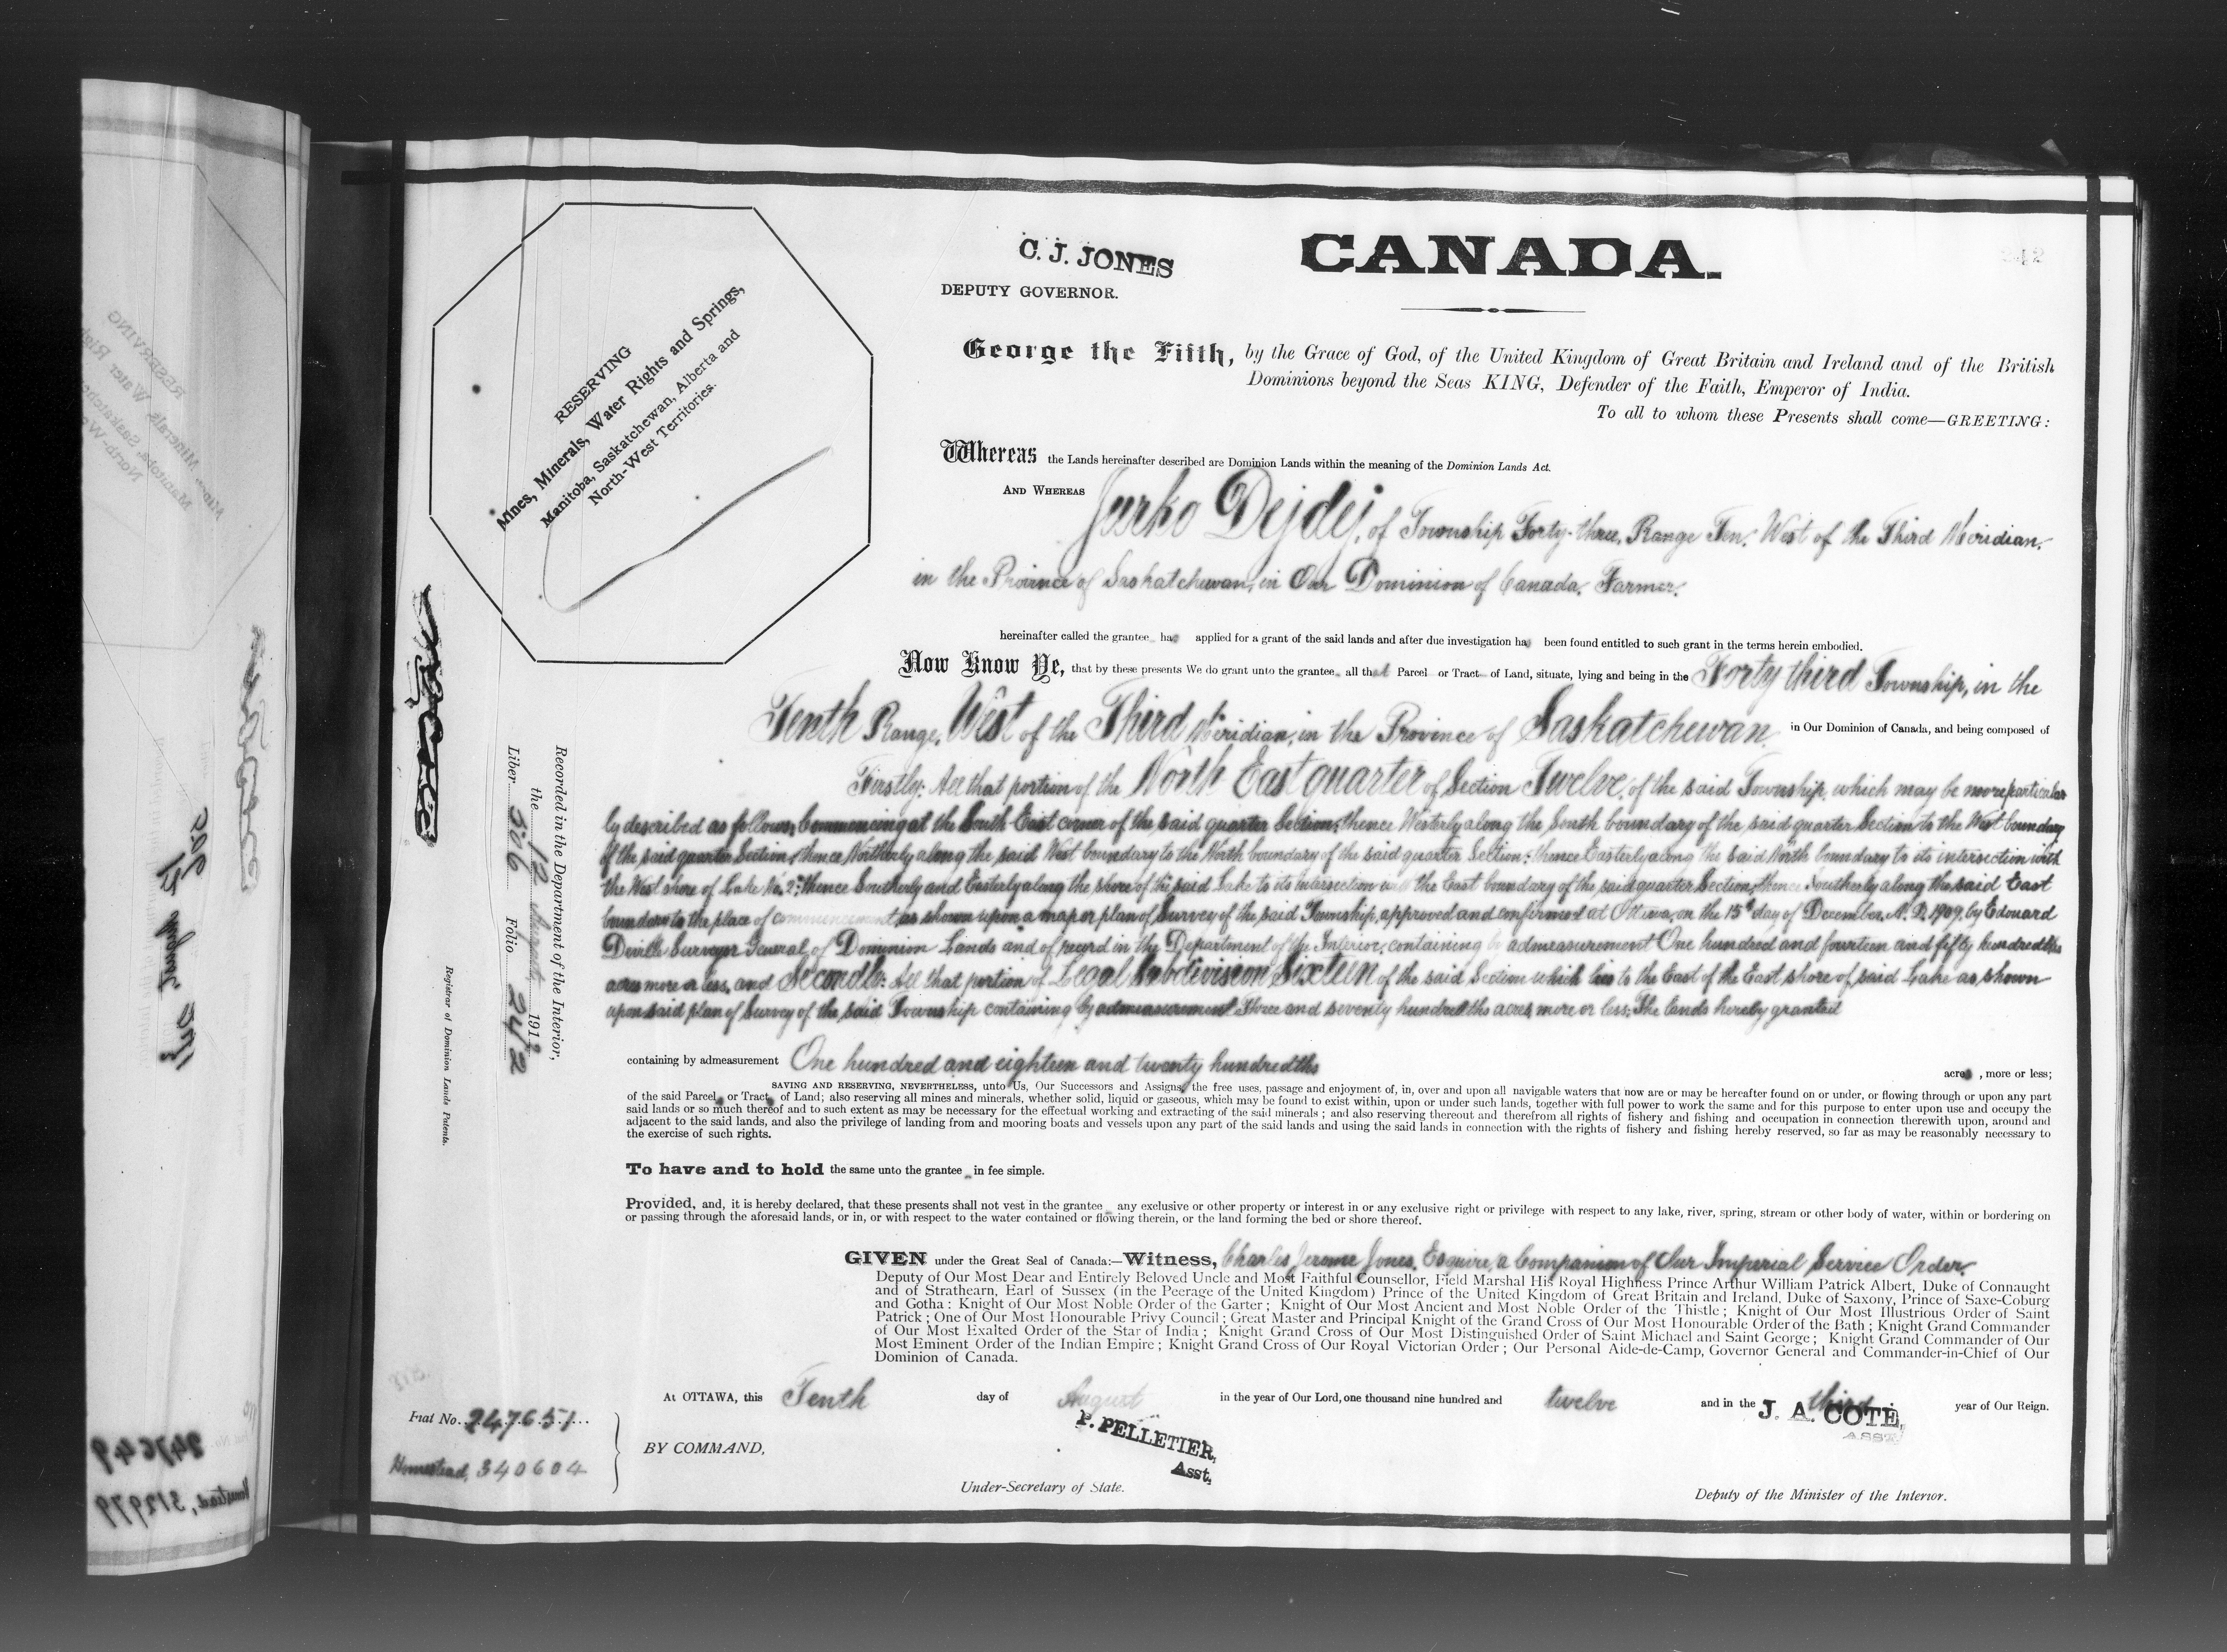 C. J. JONES
DEPUTY GOVERNOR.
CANADA.
242
RESERVING
Mines, Minerals, Water Rights and Springs,
Manitoba, Saskatchewan, Alberta and
North-West Territories.
George the Fifth, by the Grace of God, of the United Kingdom of Great Britain and Ireland and of the British
Dominions beyond the Seas KING, Defender of the Faith, Emperor of India.
To all to whom these Presents shall come—GREETING:
Whereas the Lands hereinafter described are Dominion Lands within the meaning of the Dominion Lands Act.
AND WHEREAS Jurko Dejdej, of Township Forty-three, Range Ten, West of the Third Meridian,
in the Province of Saskatchewan, in Our Dominion of Canada, Farmer,
hereinafter called the grantee has applied for a grant of the said lands and after due investigation has been found entitled to such grant in the terms herein embodied.
Now Know Ye, that by these presents We do grant unto the grantee all that Parcel or Tract of Land, situate, lying and being in the Forty third Township, in the
Tenth Range, West of the Third Meridian, in the Province of Saskatchewan in Our Dominion of Canada, and being composed of
Firstly: All that portion of the North East quarter of Section Twelve, of the said Township, which may be more particular
ly described as follows, Commencing at the South East corner of the said quarter Section; thence Westerly along the South boundary of the said quarter Section to the West boundary
of the said quarter Section, thence Northerly along the said West boundary to the North boundary of the said quarter Section; thence Easterly along the said North boundary to its intersection with
the West shore of Lake No. 2; thence Southerly and Easterly along the shore of the said Lake to its intersection with the East boundary of the said quarter Section, thence Southerly along the said East
boundary to the place of commencement, as shown upon a map or plan of Survey of the said Township, approved and confirmed at Ottawa, on the 15th day of December, A. D. 1909, by Edouard
Deville Surveyor General of Dominion Lands and of record in the Department of the Interior, containing by admeasurement One hundred and fourteen and fifty hundredths
acres more or less, and Secondly: All that portion of Legal Subdivision Sixteen of the said Section which lies to the East of the East shore of said Lake as shown
upon said plan of Survey of the said Township containing by admeasurement Three and seventy hundredths acres, more or less; The lands hereby granted
containing by admeasurement One hundred and eighteen and twenty hundredths acres, more or less;
SAVING AND RESERVING, NEVERTHELESS, unto Us, Our Successors and Assigns, the free uses, passage and enjoyment of, in, over and upon all navigable waters that now are or may be hereafter found on or under, or flowing through or upon any part
of the said Parcel or Tract of Land; also reserving all mines and minerals, whether solid, liquid or gaseous, which may be found to exist within, upon or under such lands, together with full power to work the same and for this purpose to enter upon use and occupy the
said lands or so much thereof and to such extent as may be necessary for the effectual working and extracting of the said minerals ; and also reserving thereout and therefrom all rights of fishery and fishing and occupation in connection therewith upon, around and
adjacent to the said lands, and also the privilege of landing from and mooring boats and vessels upon any part of the said lands and using the said lands in connection with the rights of fishery and fishing hereby reserved, so far as may be reasonably necessary to
the exercise of such rights.
To have and to hold the same unto the grantee in fee simple.
Provided, and, it is hereby declared, that these presents shall not vest in the grantee any exclusive or other property or interest in or any exclusive right or privilege with respect to any lake, river, spring, stream or other body of water, within or bordering on
or passing through the aforesaid lands, or in, or with respect to the water contained or flowing therein, or the land forming the bed or shore thereof.
GIVEN under the Great Seal of Canada:—Witness, Charles Jerome Jones, Esquire, a Companion of Our Imperial Service Order.
Deputy of Our Most Dear and Entirely Beloved Uncle and Most Faithful Counsellor, Field Marshal His Royal Highness Prince Arthur William Patrick Albert, Duke of Connaught
and of Strathearn, Earl of Sussex (in the Peerage of the United Kingdom) Prince of the United Kingdom of Great Britain and Ireland, Duke of Saxony, Prince of Saxe-Coburg
and Gotha : Knight of Our Most Noble Order of the Garter ; Knight of Our Most Ancient and Most Noble Order of the Thistle ; Knight of Our Most Illustrious Order of Saint
Patrick ; One of Our Most Honourable Privy Council ; Great Master and Principal Knight of the Grand Cross of Our Most Honourable Order of the Bath ; Knight Grand Commander
of Our Most Exalted Order of the Star of India ; Knight Grand Cross of Our Most Distinguished Order of Saint Michael and Saint George ; Knight Grand Commander of Our
Most Eminent Order of the Indian Empire ; Knight Grand Cross of Our Royal Victorian Order ; Our Personal Aide-de-Camp, Governor General and Commander-in-Chief of Our
Dominion of Canada.
At OTTAWA, this Tenth day of August in the year of Our Lord, one thousand nine hundred and twelve and in the third year of Our Reign.
BY COMMAND,
P. PELLETIER,
Asst.
Under-Secretary of State.
J. A. COTE,
ASST.
Deputy of the Minister of the Interior.
Fiat No. 247651
Homestead, 340604
Recorded in the Department of the Interior,
the 12 August 1912
Liber 506 Folio 242
Registrar of Dominion Lands Patents.